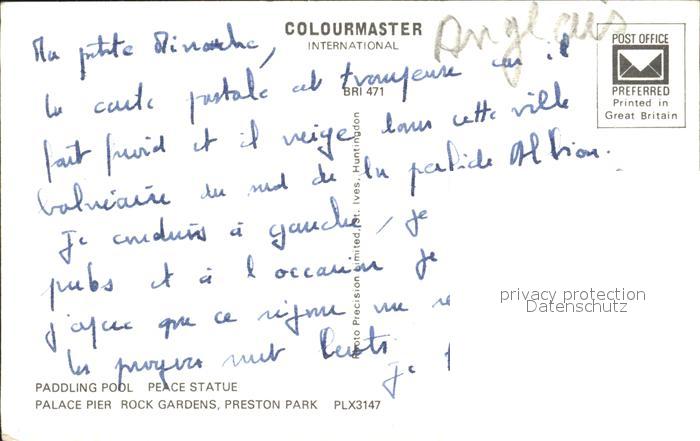 COLOURMASTER
INTERNATIONAL
Anglais
POST OFFICE
PREFERRED
Printed in
Great Britain
BRI 471
Photo Precision Limited, St. Ives, Huntingdon
Ma petite
la carte postale est trompeuse car il
fait froid et il neige dans cette ville
balnéaire du sud de la perfide Albion.
Je conduis à gauche, je
pubs et à l'occasion je
j'espère que ce régime me
les progrès sont lents
Je
privacy protection
Datenschutz
PADDLING POOL PEACE STATUE
PALACE PIER ROCK GARDENS, PRESTON PARK PLX3147